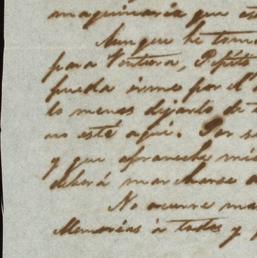 maquinaria que es
Aunque he tom
para Ventura, Pepito
pueda irme por
lo menos dejarlo de
no esté aquí. Por se
y que aproveche mi
deberá marcharse
No ocurre ma
Memorias á todos y